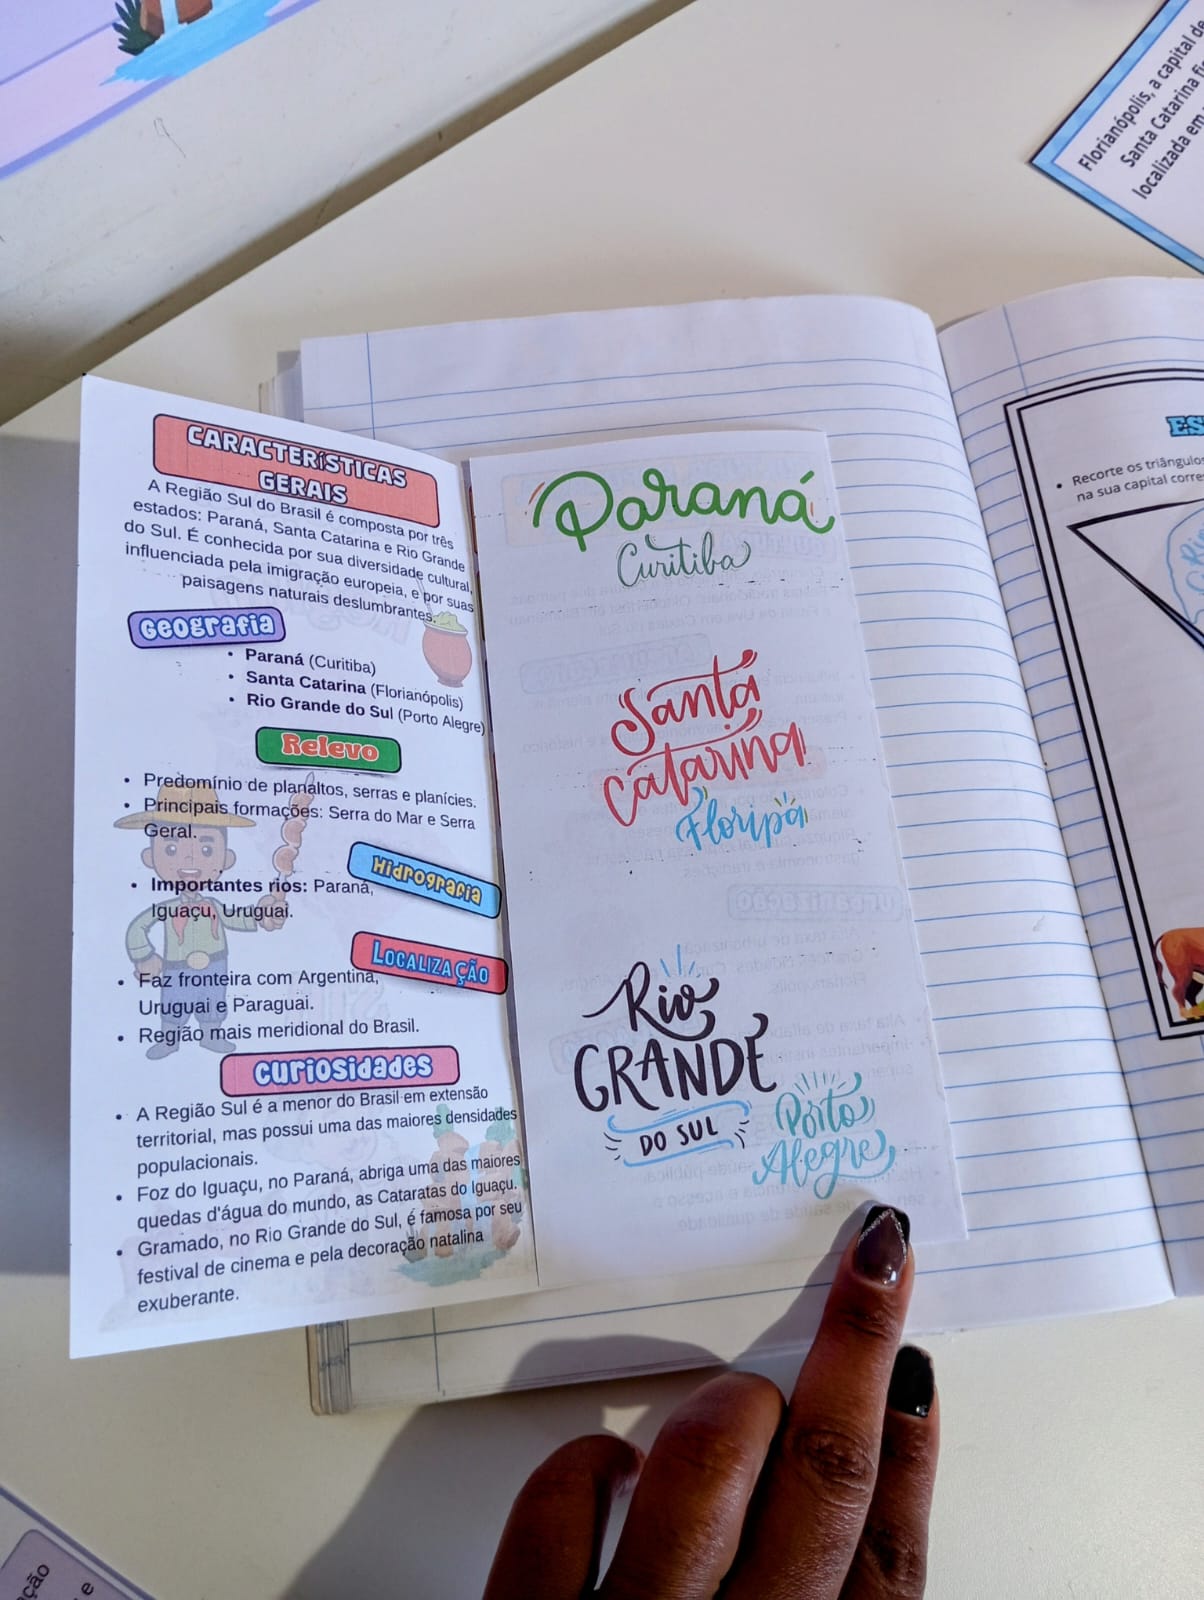 CARACTERÍSTICAS
GERAIS
A Região Sul do Brasil é composta por três
estados: Paraná, Santa Catarina e Rio Grande
do Sul. É conhecida por sua diversidade cultural,
influenciada pela imigração europeia, e por suas
paisagens naturais deslumbrantes.
Geografia
• Paraná (Curitiba)
• Santa Catarina (Florianópolis)
• Rio Grande do Sul (Porto Alegre)
Relevo
• Predomínio de planaltos, serras e planícies.
• Principais formações: Serra do Mar e Serra
Geral.
Hidrografia
• Importantes rios: Paraná,
Iguaçu, Uruguai.
LOCALIZAÇÃO
• Faz fronteira com Argentina,
Uruguai e Paraguai.
• Região mais meridional do Brasil.
curiosidades
• A Região Sul é a menor do Brasil em extensão
territorial, mas possui uma das maiores densidades
populacionais.
• Foz do Iguaçu, no Paraná, abriga uma das maiores
quedas d'água do mundo, as Cataratas do Iguaçu.
• Gramado, no Rio Grande do Sul, é famosa por seu
festival de cinema e pela decoração natalina
exuberante.
Paraná
Curitiba
Santa
Catarina
Floripa
Rio
GRANDE
DO SUL
Porto
Alegre
Florianópolis, a capital de
Santa Catarina
localizada em
• Recorte os triângulos
na sua capital